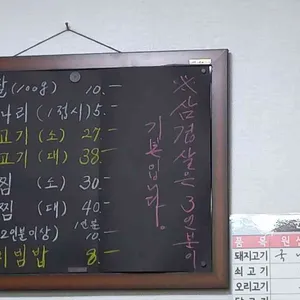 (100g) 10.-
나리 (1접시) 5.-
고기 (소) 27.-
고기 (대) 38.-
찜 (소) 30.-
찜 (대) 40.-
2인분이상) 1인분 10.-
비빔밥 8.-
※삼겹살은 3인분이
기본입니다.
품 목 원산
돼지고기 국
쇠고기
오리고기
닭고기